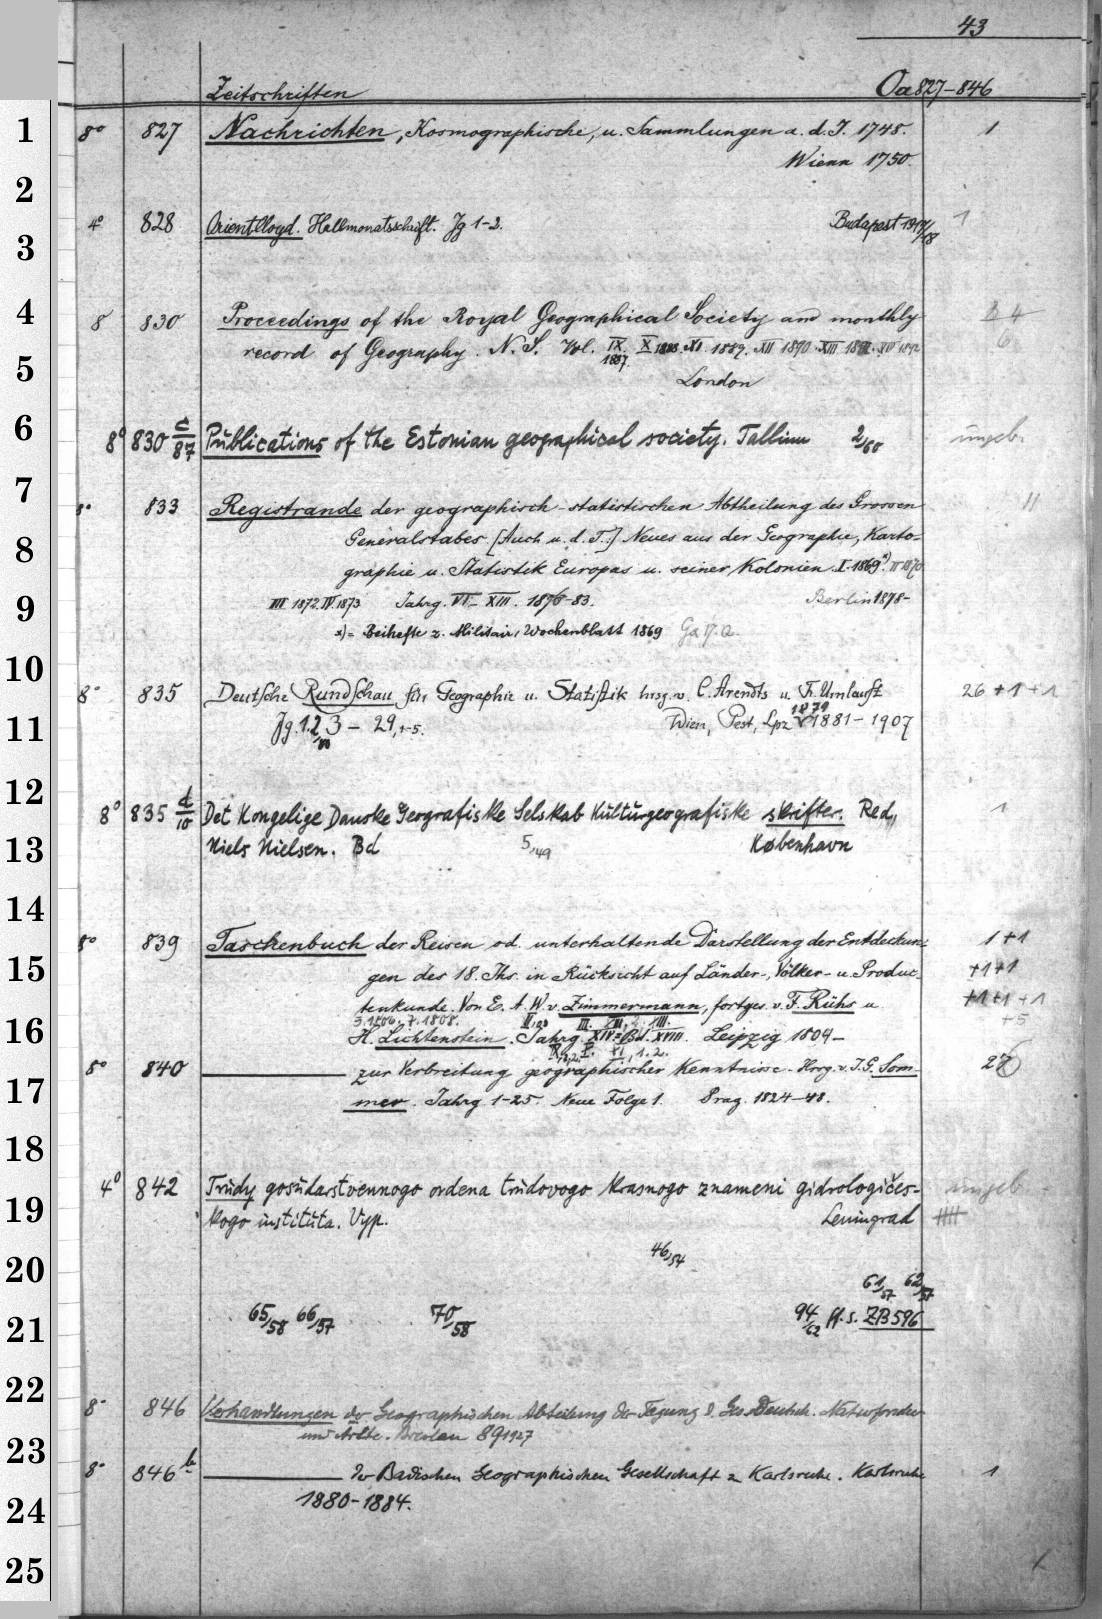 43
Zeitschriften Oa 827-846
1 8° 827 Nachrichten, Kosmographische, u. Sammlungen a. d. J. 1748. 1
Wienn 1750.
2
4° 828 Orientlloyd. Halbmonatsschrift. Jg 1-2. Budapest 1917/18 1
3
4 8 830 Proceedings of the Royal Geographical Society and monthly 3 4
record of Geography. N. S. Vol. IX. 1887. X 1888. XI. 1889. XII 1890. XIII 1891. XIV 1892 6
5 London
6 8° 830 c/87 Publications of the Estonian geographical society. Tallinn 2/60 ungeb.
7 8° 833 Registrande der geographisch-statistischen Abtheilung des Grossen 11
8 Generalstabes. [Auch u. d. T.:] Neues aus der Geographie, Karto-
graphie u. Statistik Europas u. seiner Kolonien. I. 1869x). II 1870
9 III 1872. IV. 1873 Jahrg. VI - XIII. 1876-83. Berlin 1878-
x) = Beihefte z. Militair-Wochenblatt 1869
10
8° 835 Deutsche Rundschau für Geographie u. Statistik hrsg. v. C. Arendts u. F. Umlauft 26 + 1 + 1
11 Jg. 1.2/80 3 - 29,1-5. Wien, Pest, Lpz 1879 1881-1907
12 8° 835 d/10 Det Kongelige Danske Geografiske Selskab Kulturgeografiske skrifter. Red. 1
13 Niels Nielsen. Bd 5/49 København
14
8° 839 Taschenbuch der Reisen od. unterhaltende Darstellung der Entdeckun- 1+1
15 gen des 18. Jhs. in Rücksicht auf Länder-, Völker- u. Produc- +1+1
tenkunde. Von E. A. W. v. Zimmermann, fortges. v. F. Rühs u. +1+1+1
3. 1806. 7. 1808. +5
16 H. Lichtenstein. Jahrg. XIV = Bd. XVIII. Leipzig 1804-
8° 840 zur Verbreitung geographischer Kenntnisse. Hrsg. v. J. G. Som- 26
17 mer. Jahrg 1-25. Neue Folge 1. Prag. 1824-48.
18
4° 842 Trudy gosudarstvennogo ordena trudovogo krasnogo znameni gidrologičes- ungeb.
19 kogo instituta. Vyp. Leningrad
20 46/54
61/57 62/57
21 65/58 66/57 70/58 94/62 ff. s. ZB 596
22 8° 846 Verhandlungen der Geographischen Abteilung der Tagung d. Ges. Deutsch. Naturforscher
23 und Ärzte. Breslau 89 1927
8° 846b der Badischen Geographischen Gesellschaft z Karlsruhe. Karlsruhe 1
24 1880-1884.
25